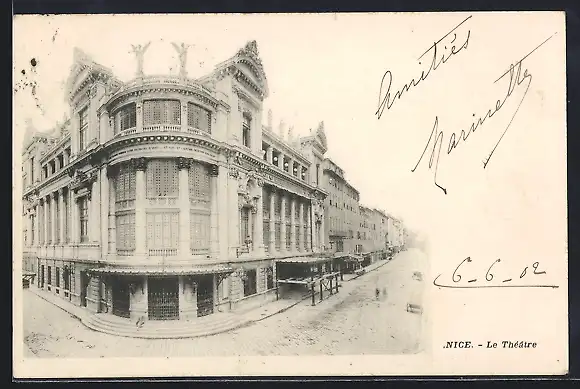 Amitiés
Marinette
6_6_02
NICE. - Le Théâtre